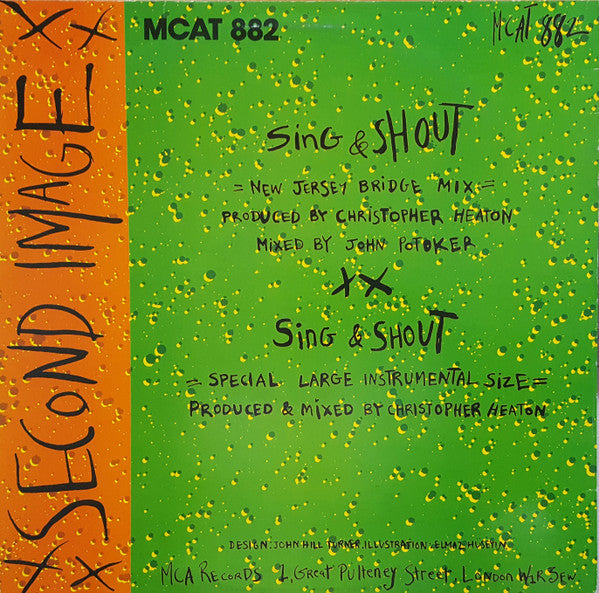 XSECOND IMAGEX
X X
MCAT 882
MCAT 882
Sing & SHOUT
= NEW JERSEY BRIDGE MIX =
PRODUCED BY CHRISTOPHER HEATON
MIXED BY JOHN POTOKER
XX
Sing & SHOUT
= SPECIAL LARGE INSTRUMENTAL SIZE =
PRODUCED & MIXED BY CHRISTOPHER HEATON
DESIGN: JOHN HILL TURNER, ILLUSTRATION: ELMAZ HUSEYIN
MCA RECORDS 1, GREAT PULTENEY STREET, LONDON W1R 3FW